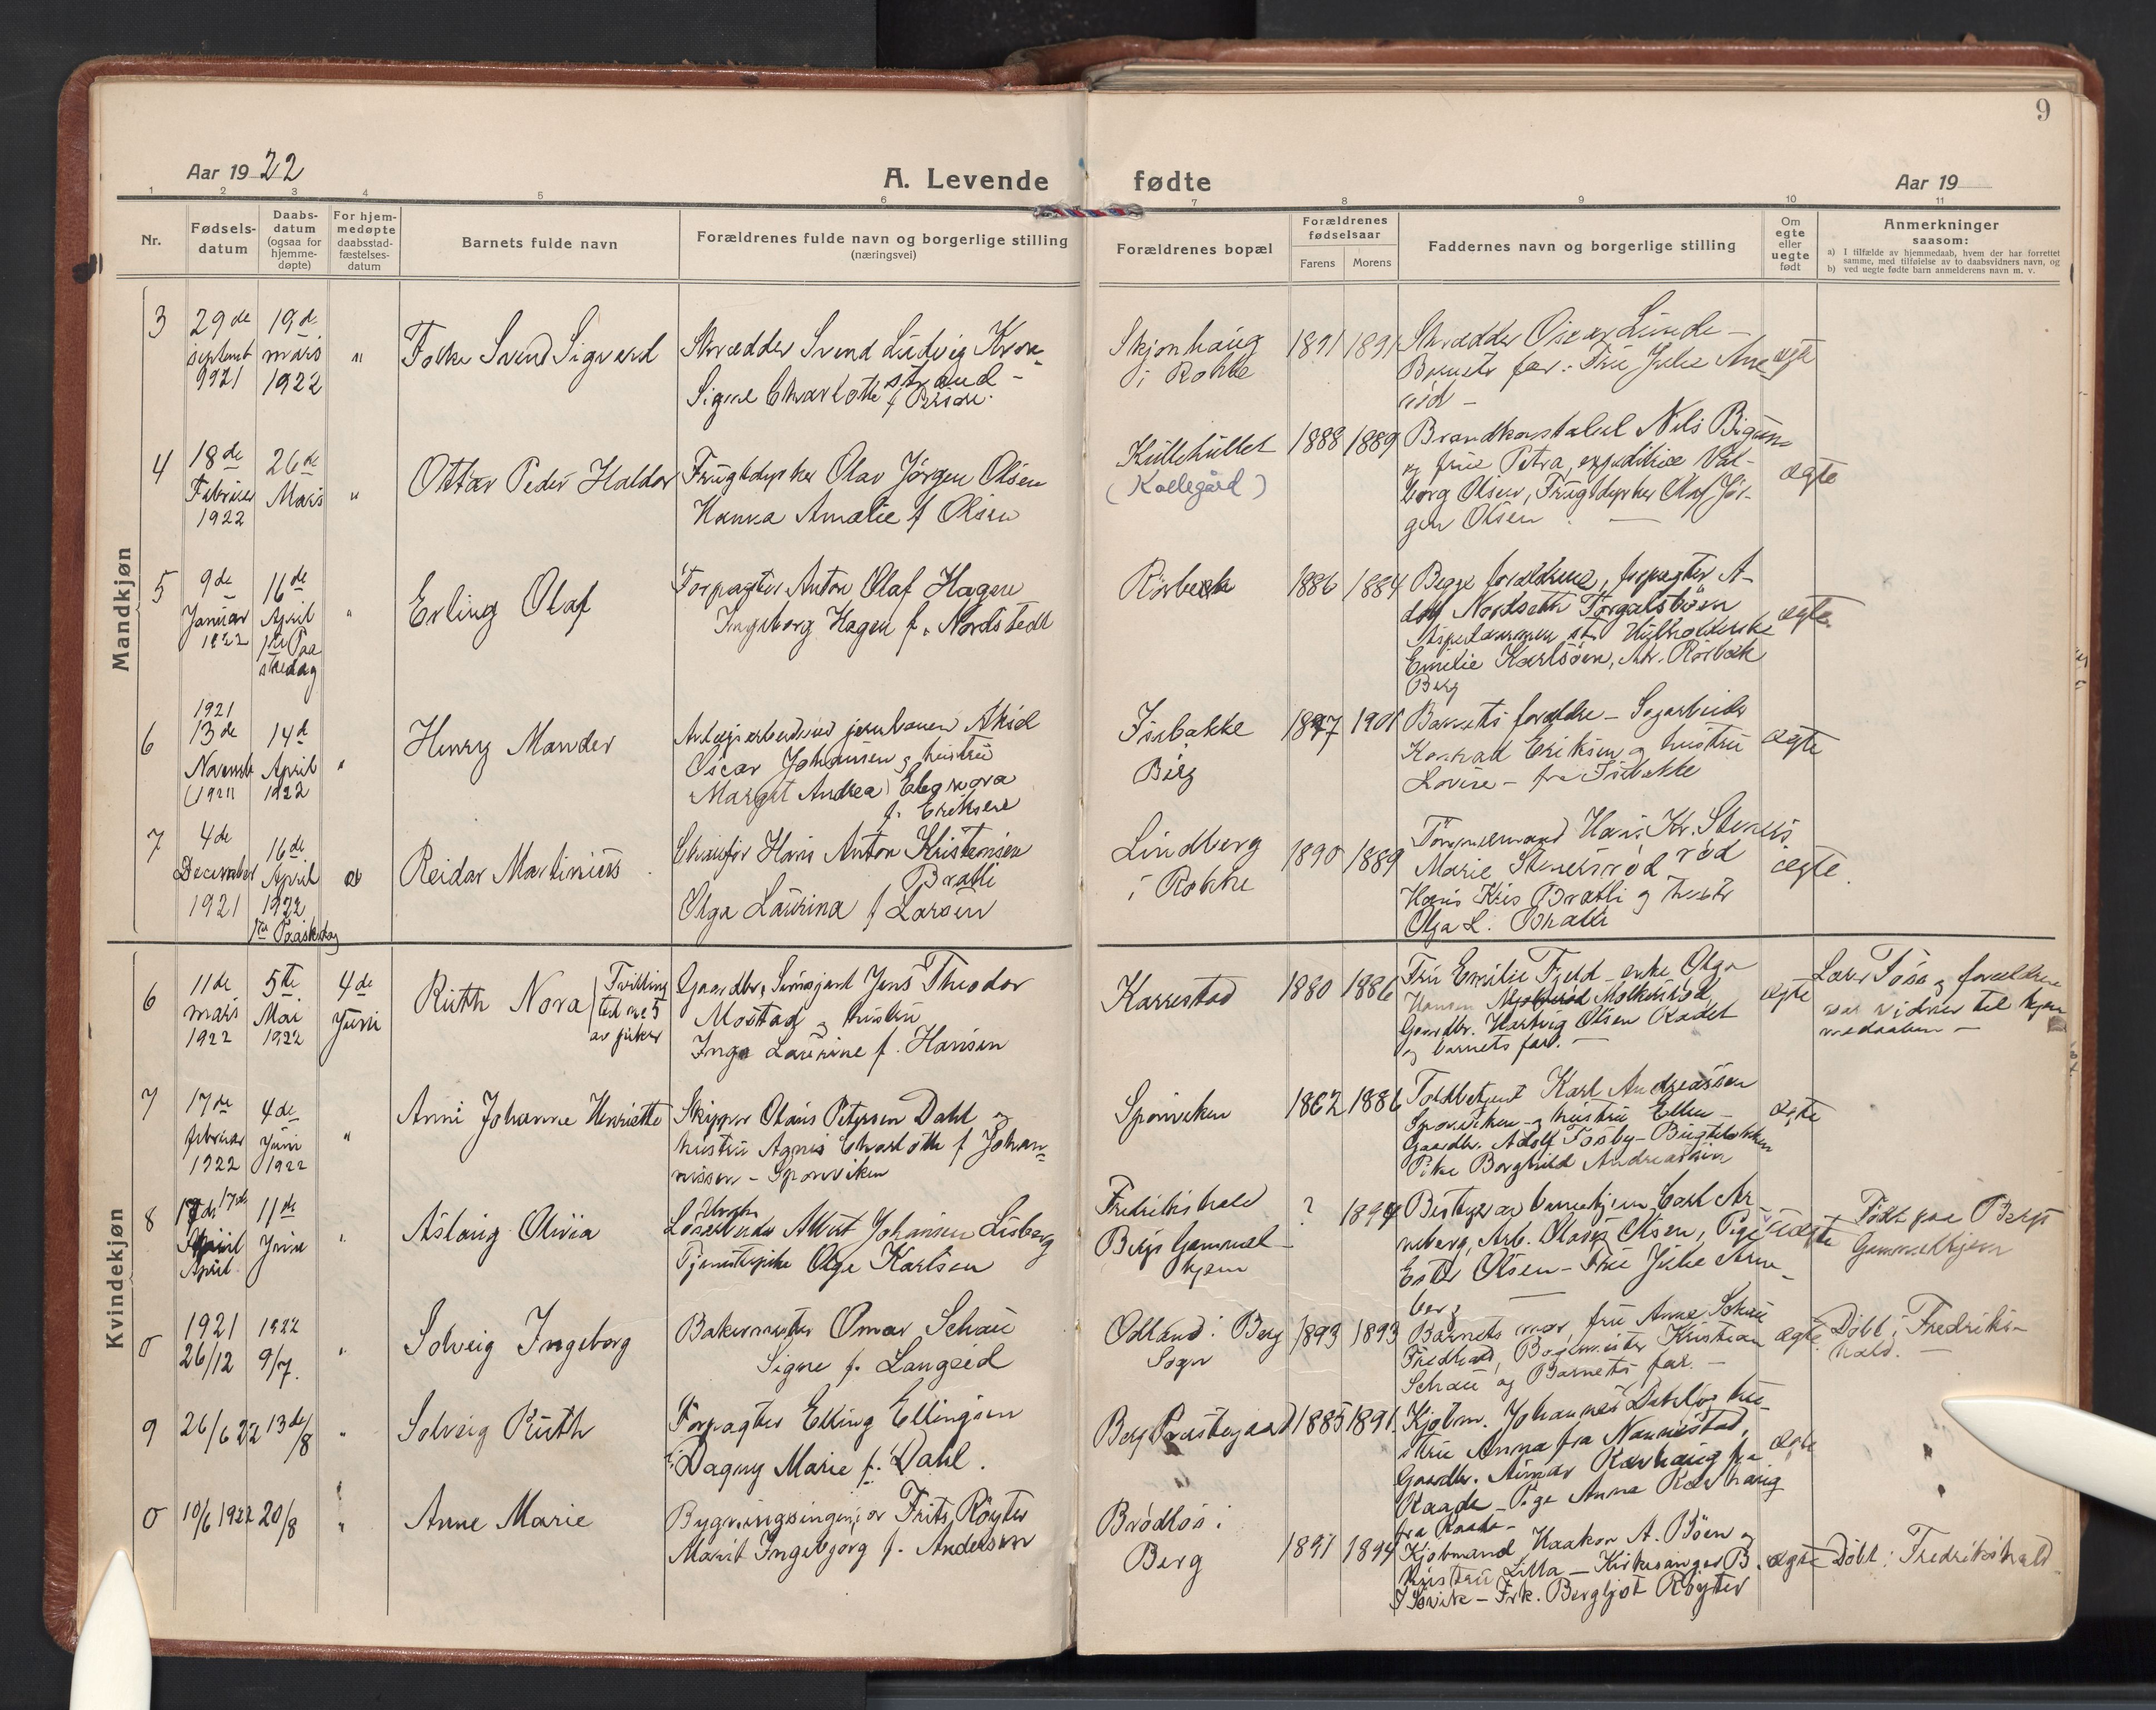 9
Aar 1922
A. Levende fødte
Aar 19
1 2 3 4 5 6 7 8 9 10 11
Nr.
Fødsels-
datum
Daabs-
datum
(ogsaa for
hjemme-
døpte)
For hjem-
medøpte
daabsstad-
fæstelses-
datum
Barnets fulde navn
Forældrenes fulde navn og borgerlige stilling
(næringsvei)
Forældrenes bopæl
Forældrenes
fødselsaar
Farens Morens
Faddernes navn og borgerlige stilling
Om
egte
eller
uegte
født
Anmerkninger
saasom:
a) I tilfælde av hjemmedaab, hvem der har forrettet
samme, med tilføielse av to daabsvidners navn, og
b) ved uegte fødte barn anmelderens navn m. v.
Mandkjøn
3
29de
septemb
1921
19de
mars
1922
"
Folke Svend Sigvard
Skrædder Svend Ludvig Kron-
strand -
Signe Charlotte f
Skjonhaug
i Rokke
1891 1891
Skrædder Oscar Lunde -
Barnets far. Frue Julie Arne-
rød -
ægte
4
18de
Februar
1922
26de
Mars
"
Ottar Peder Haldor
Frugtdyrker Olav Jørgen Olsen
Hanna Amalie f Olsen
Kullehullet
(Kollegård)
1888 1889
Brandkonstabel Nils
og frue Petra, expeditrice Val-
borg Olsen, Frugtdyrker Olaf Jør-
gen Olsen. -
ægte
5
9de
Januar
1922
16de
April
1ste Paa
skedag
"
Erling Olaf
Forpagter Anton Olaf Hagen
Ingeborg Hagen f. Nordstedt
Rørbæk
1886 1884
Begge forældrene, forpagter A-
dolf Nordseth
Emilie Karlsøen, Adr. Rørbæk
Berg
ægte
6
1921
13de
Novemb
1921
14d
April
1922
"
Henry Mander
Anlægsarbeider jernbanen
Oscar Johansen og hustru
Margit Andrea Eleonora
f. Eriksen
Isebakke
Berg
1897 1901
Barnets forældre - Sagarbeider
Konrad Eriksen og hustru
Lovise - fra Isebakke
ægte
7
4de
December
1921
16de
April
1922
1ste Paaskedag
Reidar Martinius
Chauffør Hans Anton Kristensen
Bratli
Olga Laurina f Larsen
Lindberg
i Rokke
1890 1889
Tømmermand Hans Kr. Steners
rød
Marie Stenersrød
Hans Kris Bratli og hustr
Olga L. Bratli
ægte
Kvindekjøn
6
11de
mars
1922
5te
Mai
1922
4de
Juni
Ruth Nora
Tvilling
av piker
Gaardbr. Jens Theodor
Mostad og hustru
Inga Laurine f. Hansen
Karrestad
1880 1886
Fru Emilie Fjeld - enke Olga
Hansen
Gaardbr. Hartvig Olsen Kadet
og barnets far. -
ægte
Læge og forældrene
var vidner til hjem
medaaben -
7
17de
februar
1922
4de
Juni
1922
"
Anni Johanne Henriette
Skipper Olaus Petersen Dahl og
hustru Agnes Charlotte f Johan-
nissen - Sponviken
Sponviken
1862 1886
Toldbetjent Karl Andreassen
Sponviken - og hustru Ellen -
Gaardbr. Adolf Tosby -
Pike Borghild Andreassen
ægte
8
17de
April
April
11de
Juni
"
Aslaug Olivia
Løsarbeider Johansen Lisberg
Tjenestepike Olga Karlsen
Fredrikshald
Bergs Gammel-
hjem
? 1894
Bestyrer av barnehjem Carl Ar
neberg, Arb. Olsen, Pige
Ester Olsen - Frue Julie Arne-
berg
uægte
Født paa Bergs
Gammelhjem
0
1921
26/12
1922
9/7.
"
Solveig Ingeborg
Bakermester Omar Schau
Signe f. Langeid
Odland i Berg
Sogn
1893 1893
Barnets mor, fru Anna Schau
Fredhald, Bagmester Kristian
Schau og Barnets far. -
ægte.
Døbt i Fredriks-
hald. -
9
26/6 22
13de/8
"
Solveig Ruth
Forpagter Elling Ellingsen
Dagny Marie f. Dahl.
Berg Prestegaard
1885 1891.
Kjøbm. Johannes Dahl og hu-
stru Anna fra Nannestad,
Gaardbr. Karhaug fra
Raade - Pige Anna Karhaug
fra Raade -
ægte
0
10/6 1922
20/8
"
Anne Marie
Bygningsingeniør Frits Røyter
Marit Ingebjørg f. Andersen
Brødløs i
Berg
1891 1894
Kjøbmand Haakon A. Bøen og
hustru Lilla - Kirkesanger B.
J Isvik - Frk. Bergljot Røyter
ægte
Døbt i Fredrikshald